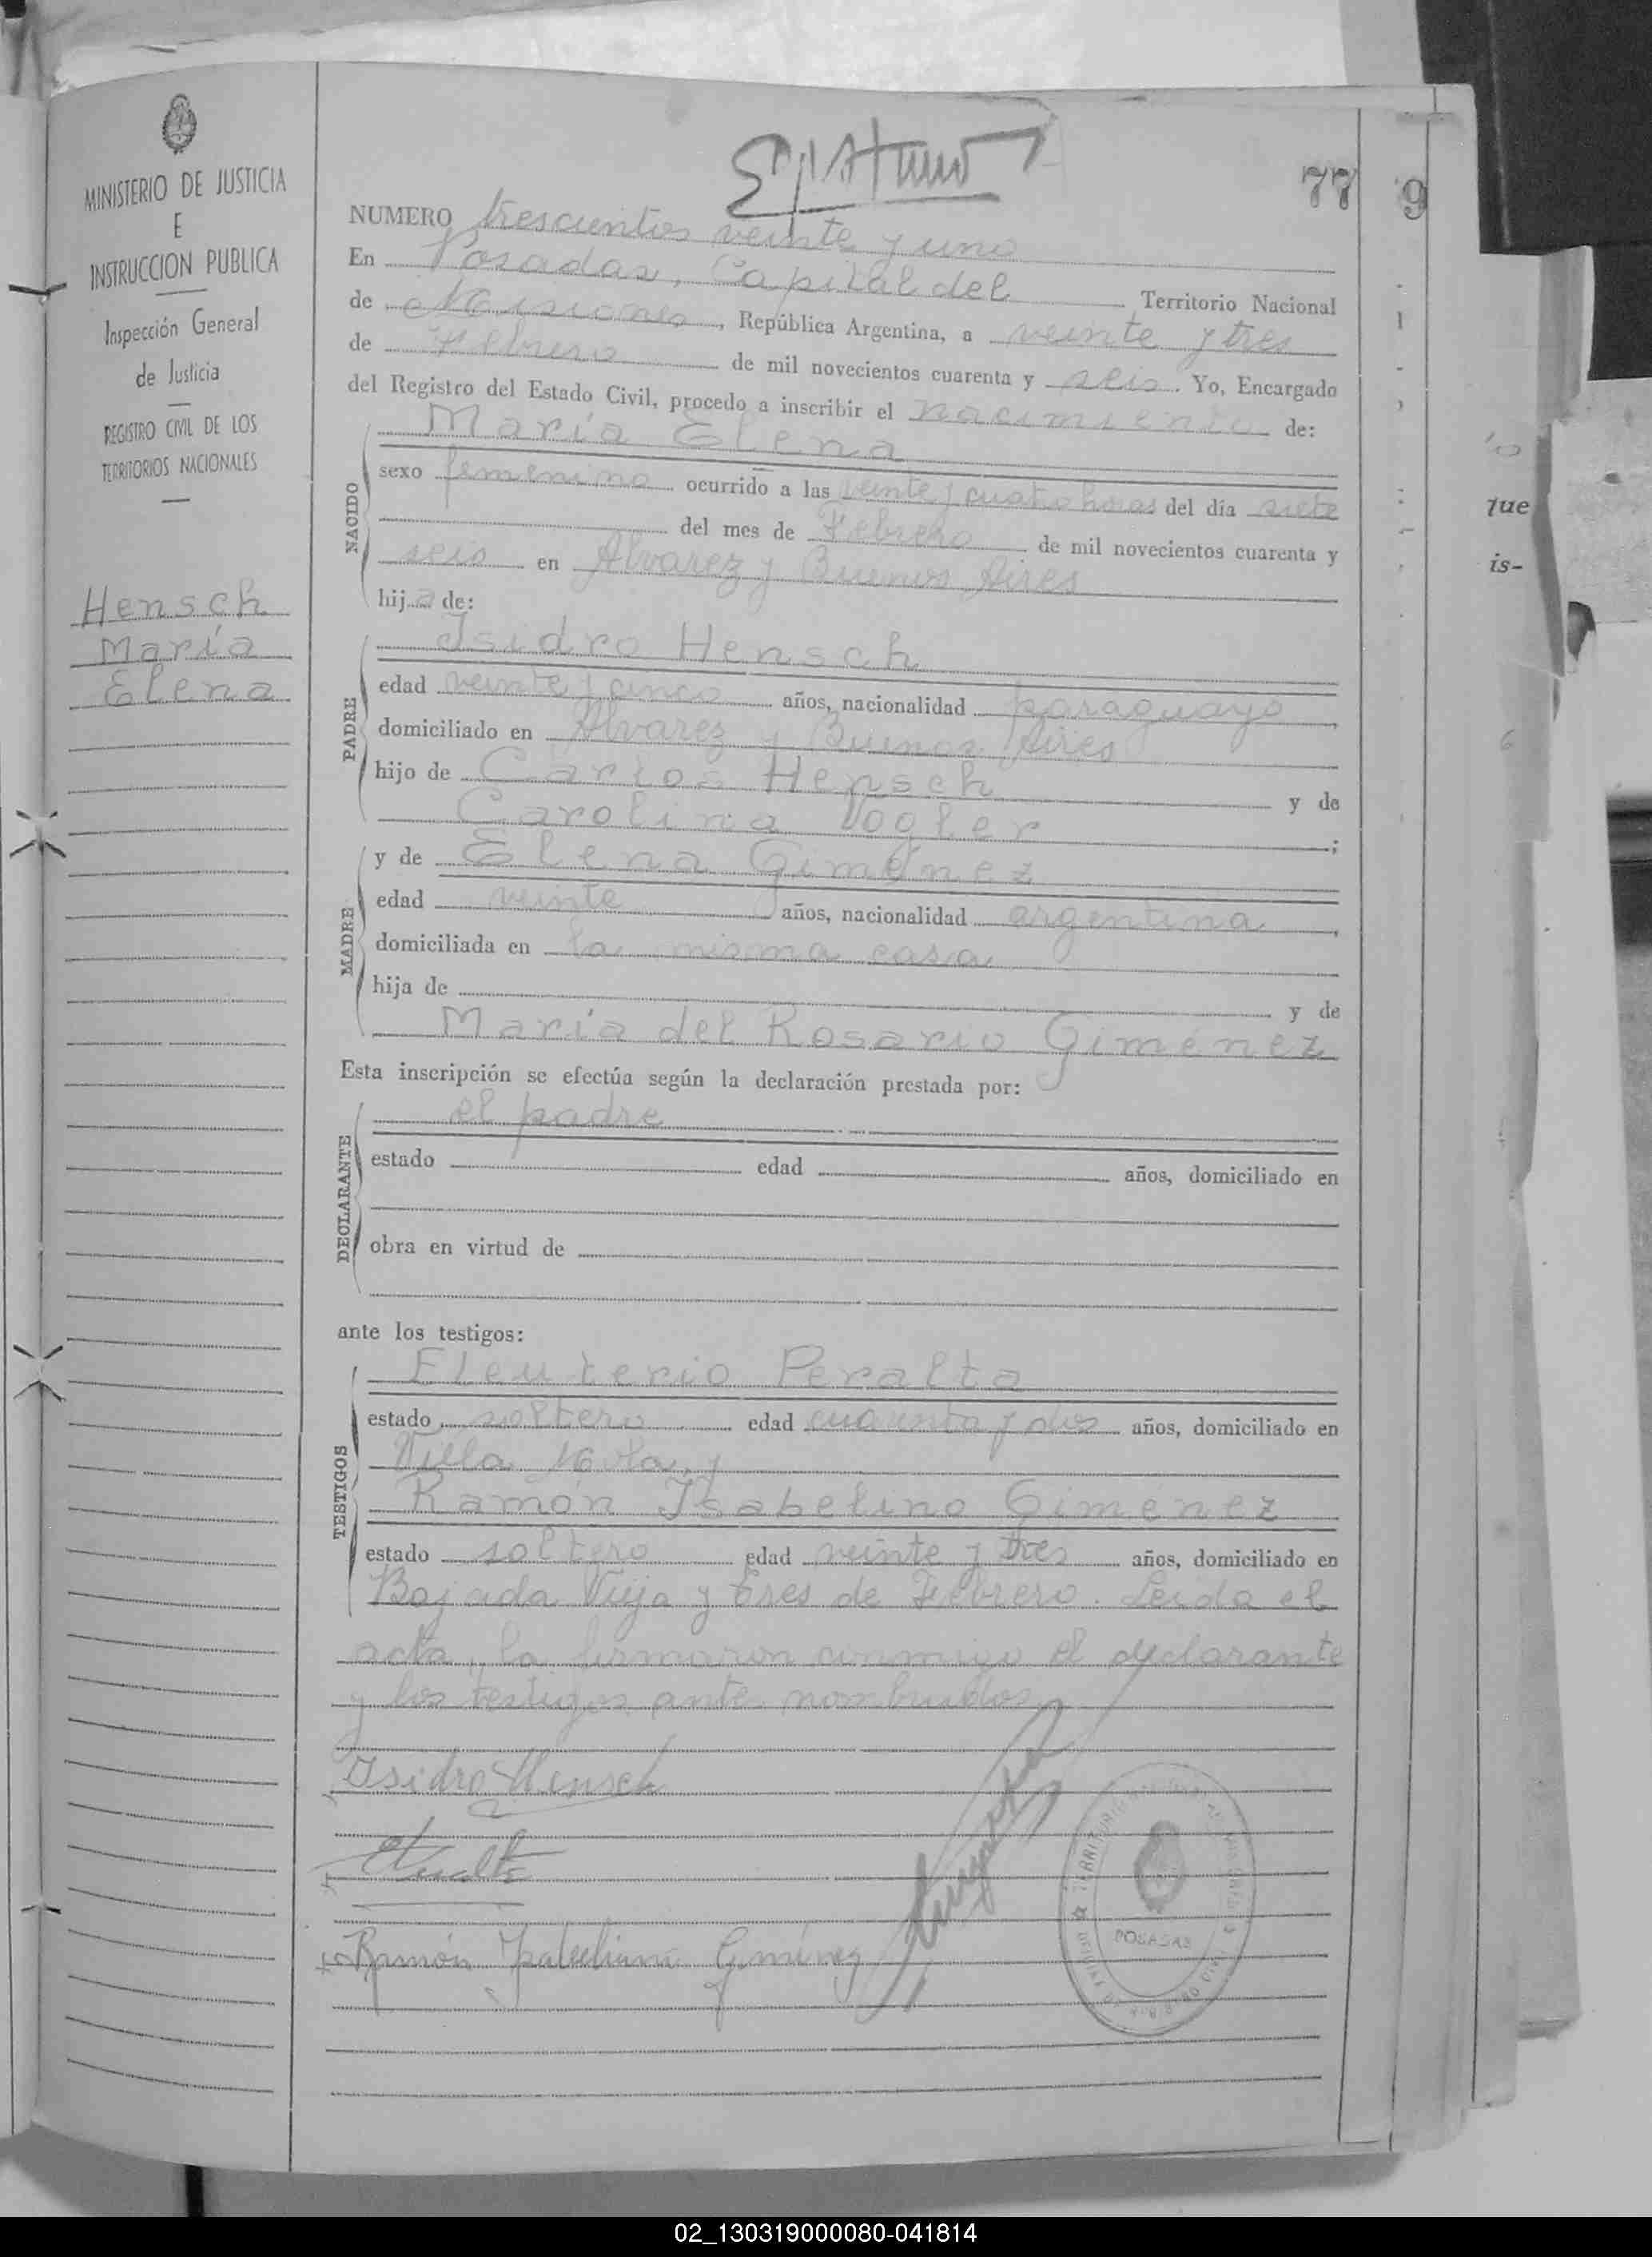 MINISTERIO DE JUSTICIA
E
INSTRUCCION PUBLICA
Inspección General
de Justicia
REGISTRO CIVIL DE LOS
TERRITORIOS NACIONALES
Hensch
María
Elena
77
9
NUMERO trescientos veinte y uno
En Posadas, Capital del Territorio Nacional
de Misiones, República Argentina, a veinte y tres
de Febrero de mil novecientos cuarenta y seis. Yo, Encargado
del Registro del Estado Civil, procedo a inscribir el nacimiento de:
NACIDO
María Elena
sexo femenino ocurrido a las veinte y cuatro horas del día siete
del mes de Febrero de mil novecientos cuarenta y
seis en Alvarez y Buenos Aires
hija de:
PADRE
Isidro Hensch
edad veinte y cinco años, nacionalidad paraguayo,
domiciliado en Alvarez y Buenos Aires
hijo de Carlos Hensch y de
Carolina Vogler;
MADRE
y de Elena Giménez
edad veinte años, nacionalidad argentina,
domiciliada en la misma casa
hija de y de
María del Rosario Giménez
Esta inscripción se efectúa según la declaración prestada por:
DECLARANTE
el padre
estado edad años, domiciliado en
obra en virtud de
ante los testigos:
TESTIGOS
Eleuterio Peralta
estado soltero edad cuarenta y dos años, domiciliado en
Villa Mota, y
Ramón Isabelino Giménez
estado soltero edad veinte y tres años, domiciliado en
Bajada Vieja y tres de Febrero. Leída el
acta, la firmaron conmigo el declarante
y los testigos ante nombrados
Isidro Hensch
Ramón Isabelino Giménez
POSADAS
que
is-
02_130319000080-041814